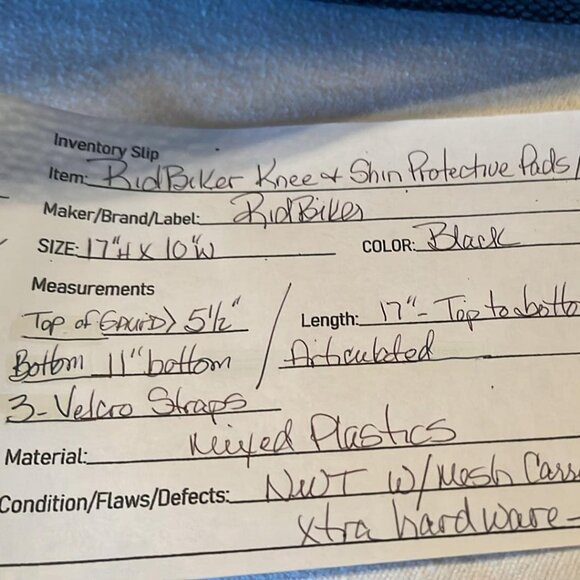 Inventory Slip
Item: RidBiker Knee & Shin Protective Pads/
Maker/Brand/Label: RidBiker
SIZE: 17"H X 10"W COLOR: Black
Measurements
Top of (GAURD) > 5½" / Length: 17" - Top to botto
Bottom 11" bottom Articulated
3-Velcro Straps
Material: Mixed Plastics
Condition/Flaws/Defects: NWT W/Mesh
Xtra hardware -